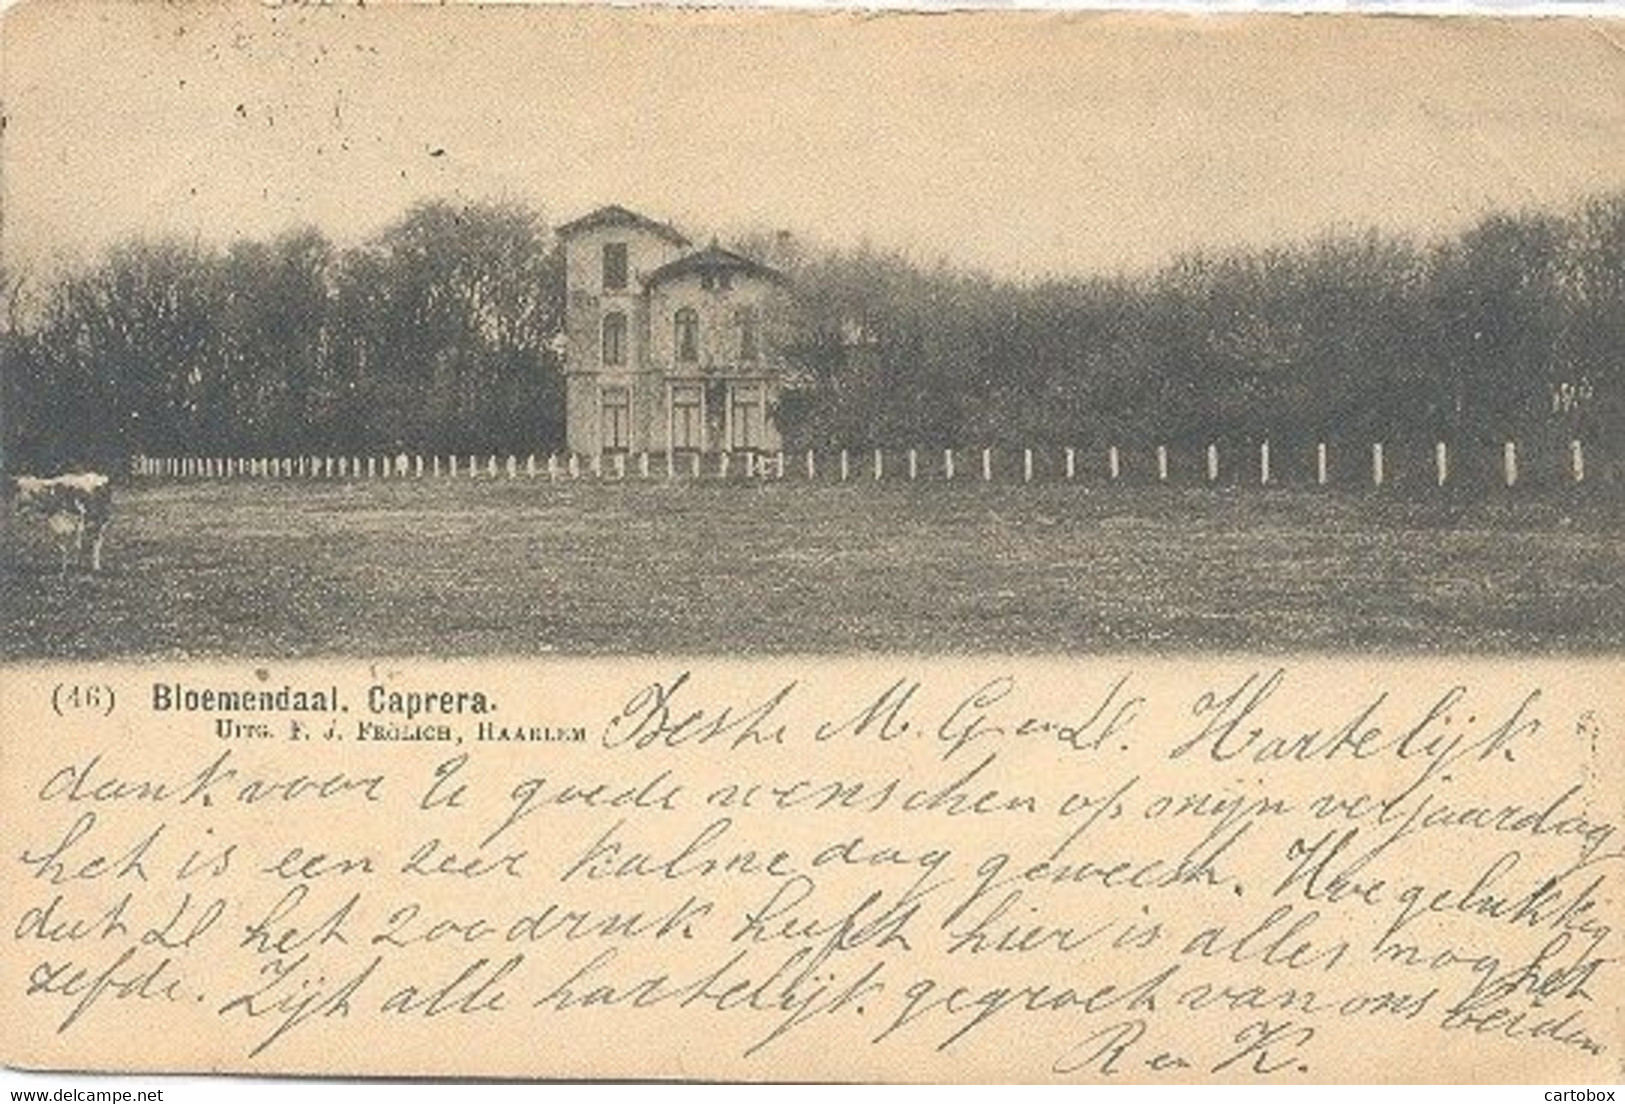 (46) Bloemendaal. Caprera.
Uitg. F. J. Frölich, Haarlem
Beste M. G en D. Hartelijk
dank voor U goede wenschen op mijn verjaardag
het is een zeer kalme dag geweest. Hoe gelukkig
dat D het zoo druk heeft hier is alles nog het
zefde. Zijt alle hartelijk gegroet van ons beiden
R en K.
www.delcampe.net
cartobox